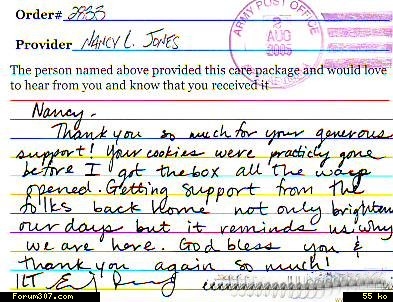 Order# 2833
Provider NANCY L. JONES
ARMY POST OFFICE
2
AUG
2005
The person named above provided this care package and would love
to hear from you and know that you received it
Nancy,
Thank you so much for your generous
support! Your cookies were practicly gone
before I got the box all the way
opened. Getting support from the
folks back home not only brighten
our days but it reminds us why
we are here. God bless you &
thank you again so much!
1LT
Forum307.com
55 ko